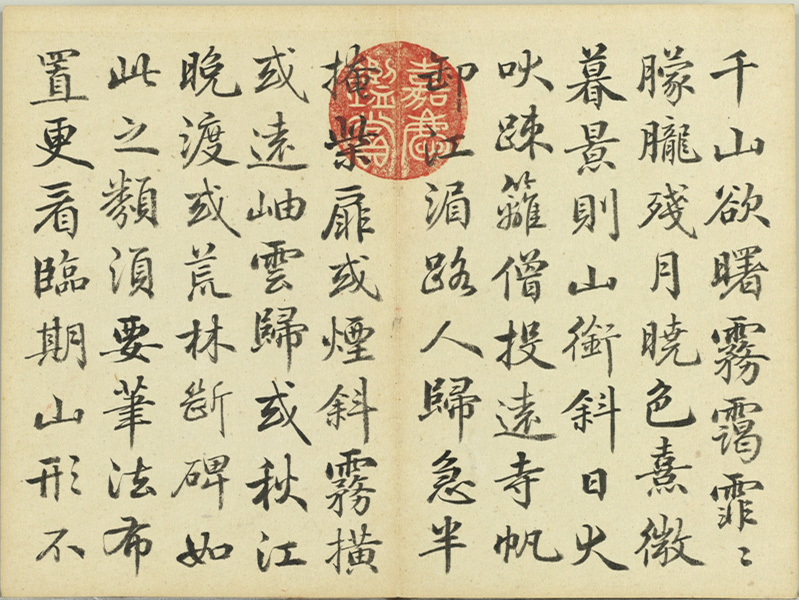 千山欲曙霧靄霏〻
朦朧殘月曉色熹微
暮景則山銜斜日犬
吠疎籬僧投遠寺帆
卸江湄路人歸急半
掩柴扉或煙斜霧橫
或遠岫雲歸或秋江
晚渡或荒林斷碑如
此之類須要筆法布
置更看臨期山形不
嘉慶
鑑賞